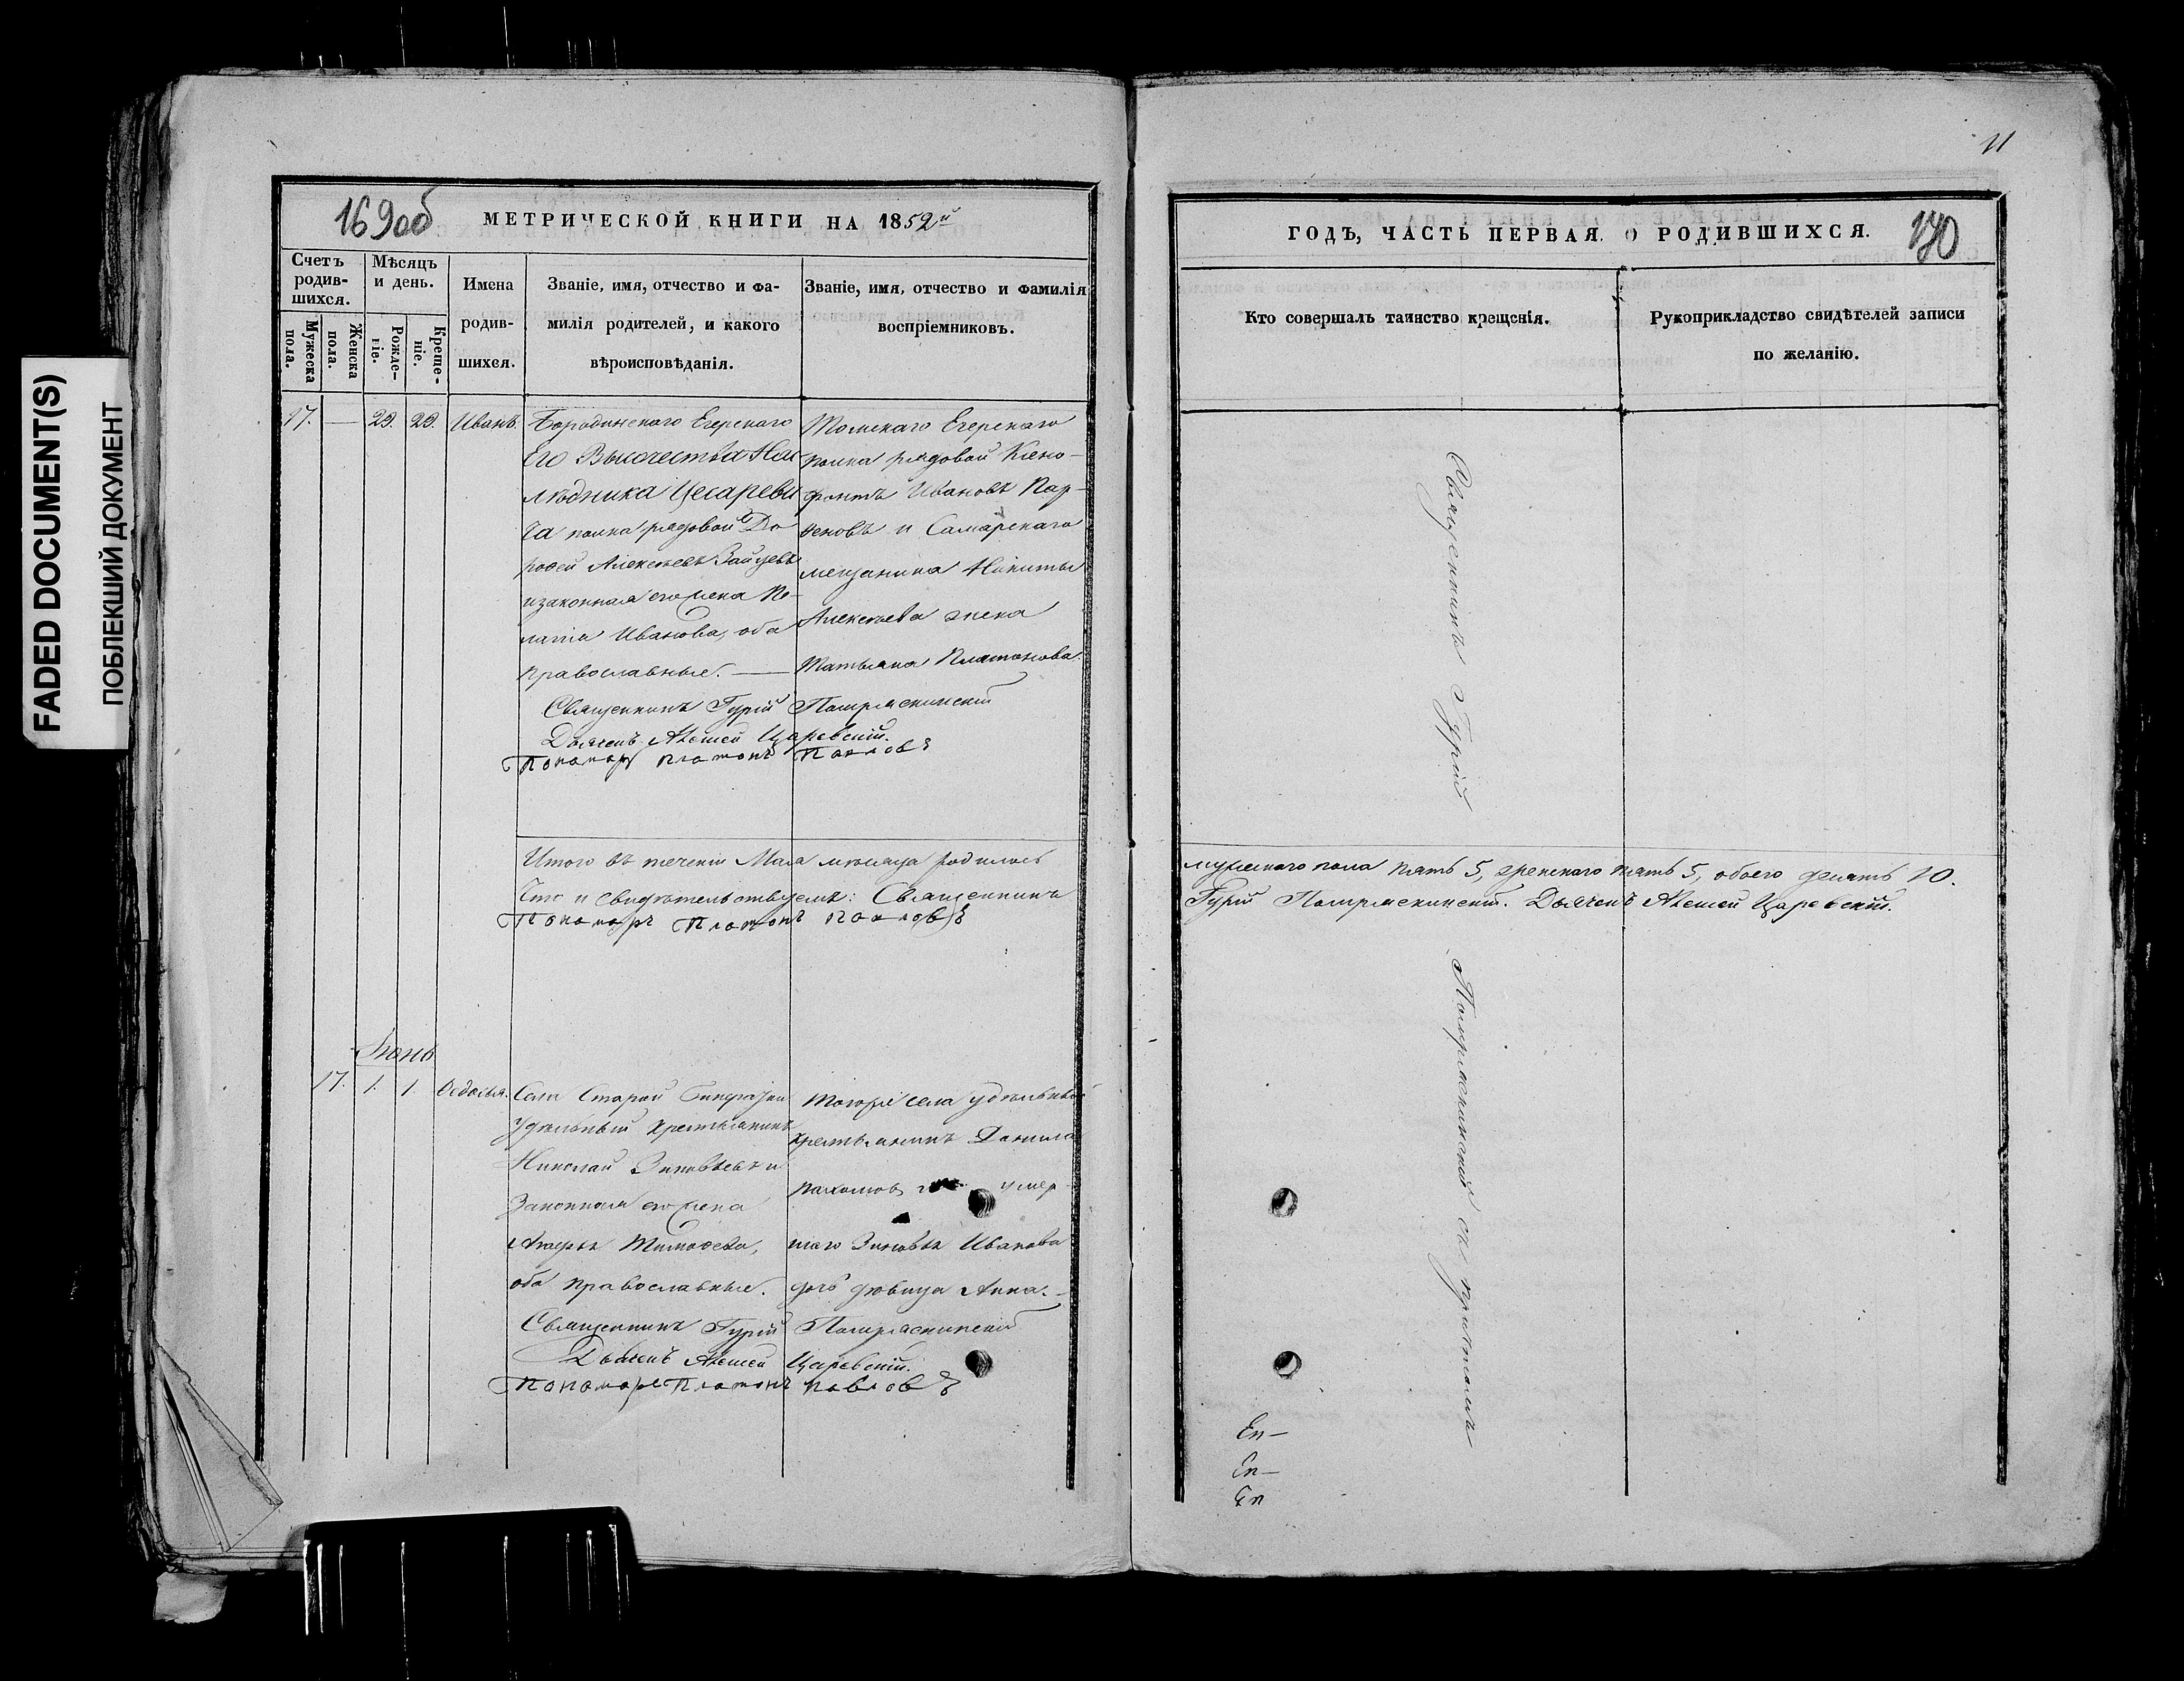 FADED DOCUMENT(S)
ПОБЛЕКШИЙ ДОКУМЕНТ
169об
МЕТРИЧЕСКОЙ КНИГИ НА 1852й
Счетъ родив-шихся.
Мужеска пола.
Женска пола.
Мѣсяцъ и день.
Рожде-ніе.
Креще-ніе.
Имена
родив-
шихся.
Званіе, имя, отчество и фа-
милія родителей, и какого
вѣроисповѣданія.
Званіе, имя, отчество и фамилія
воспріемниковъ.
17. — 29. 29. Иванъ.
Бородинскаго Егерскаго
Его Высочества Нас
лѣдника Цесареви
ча полка рядовой До
рофей Алексѣевъ Зайцевъ
и законная его жена Пе-
лагіа Иванова, оба
православные. —
Томскаго Егерскаго
полка рядовой Ксено-
фонтъ Ивановъ Пар-
феновъ и Самарскаго
мещанина Никиты
Алексѣева жена
Татьяна Платонова.
Священникъ Гурій
Дьячекъ Алексей Царевскій.
Пономарь Платонъ Павловъ
Итого въ теченіи Мая мѣсяца родилось
Что и свидѣтельствуемъ: Священникъ
Пономарь Платонъ Павловъ
Іюнь
17. 1. 1. Ѳедосья.
Села Старой
Удѣльный крестьянинъ
Николай Зиновьевъ и
Законная его жена
Тимоѳева,
оба православные.
тогоже села удѣльный
крестьянинъ Данила
Пахомовъ умер
шаго Зиновья Иванова
дочь дѣвица Анна. —
Священникъ Гурій
Дьячекъ Алексей Царевскій.
Пономарь Платонъ Павловъ
11
ГОДЪ, ЧАСТЬ ПЕРВАЯ. О РОДИВШИХСЯ.
170
Кто совершалъ таинство крещенія.
Рукоприкладство свидѣтелей записи
по желанію.
Священникъ Гурій
съ причтомъ
мужескаго пола пять 5, женскаго пять 5, обоего десять 10.
Гурій Дьячекъ Алексей Царевскій.
Еп—
Еп—
Еп